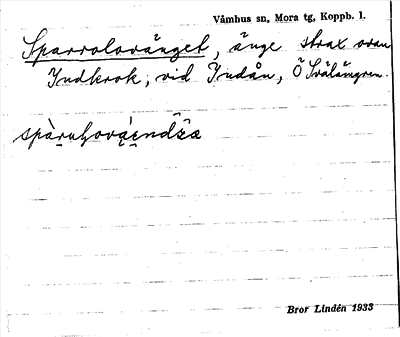 Våmhus sn, Mora tg, Koppb. l.
Sparrolovänget, änge strax ovan
Indkrok, vid Indån, Ö Svälången.
Bror Lindén 1933